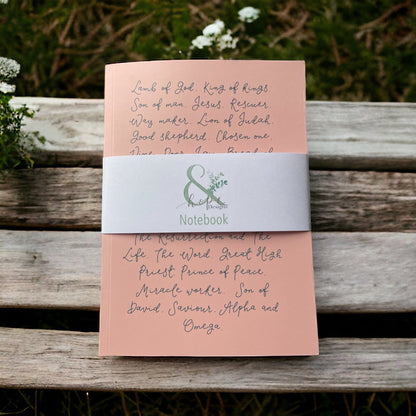 Lamb of God. King of Kings
Son of man. Jesus. Rescuer
Way maker. Lion of Judah.
Good shepherd. Chosen one
&
hope
Designs
Notebook
The Resurrection and The
Life. The Word. Great High
Priest. Prince of Peace.
Miracle worker. Son of
David. Saviour. Alpha and
Omega